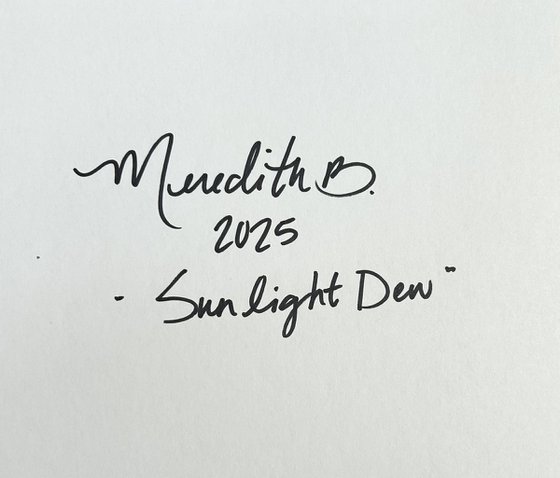 Meredith B.
2025
- Sunlight Dew"